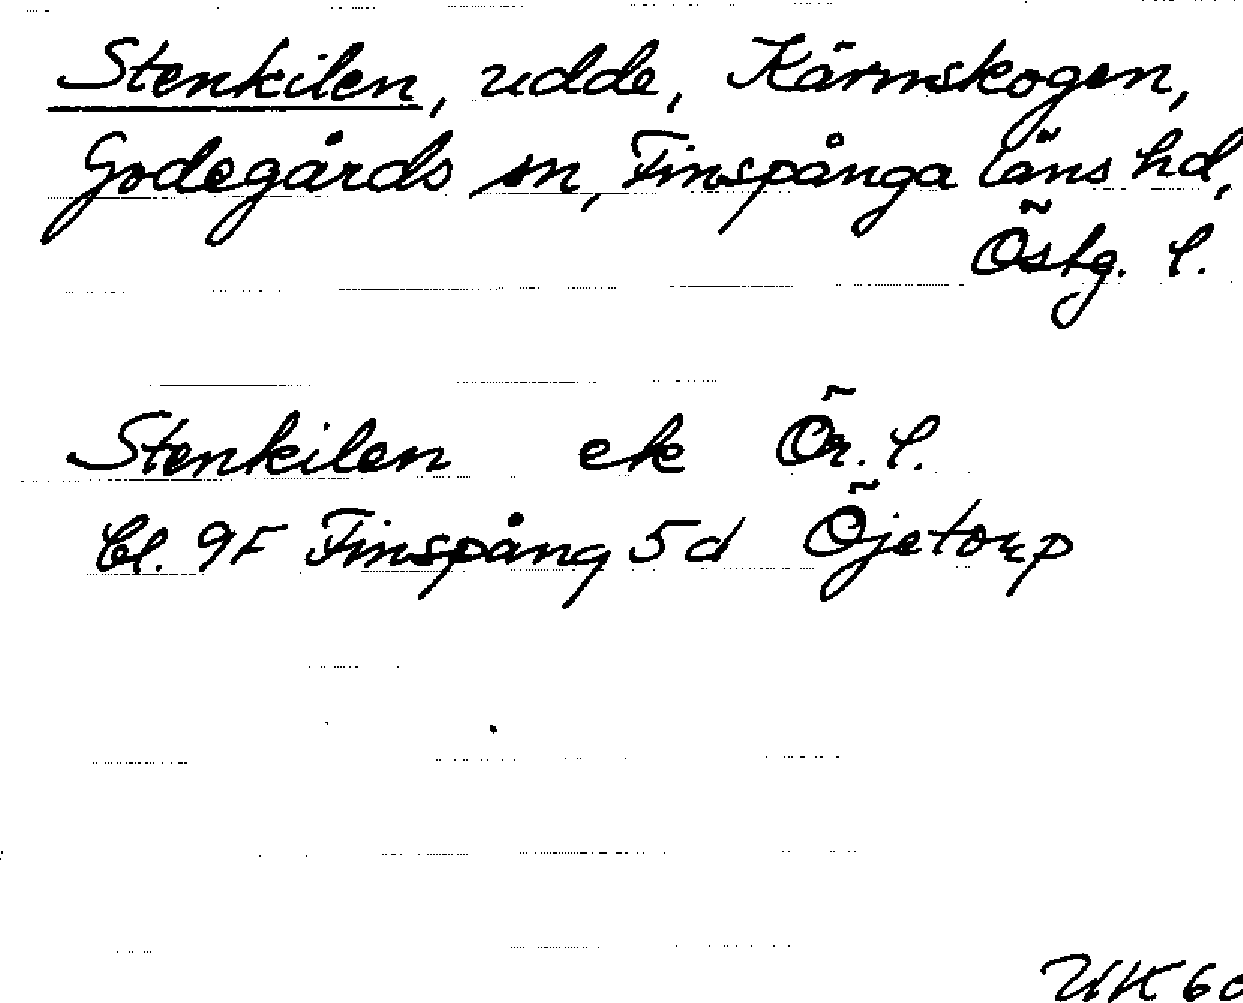 Stenkilen, udde, Kärmskogen,
Godegårds sn, Finspånga läns hd,
Östg. l.
Stenkilen ek Ör. l.
bl. 9F Finspång 5d Öjetorp